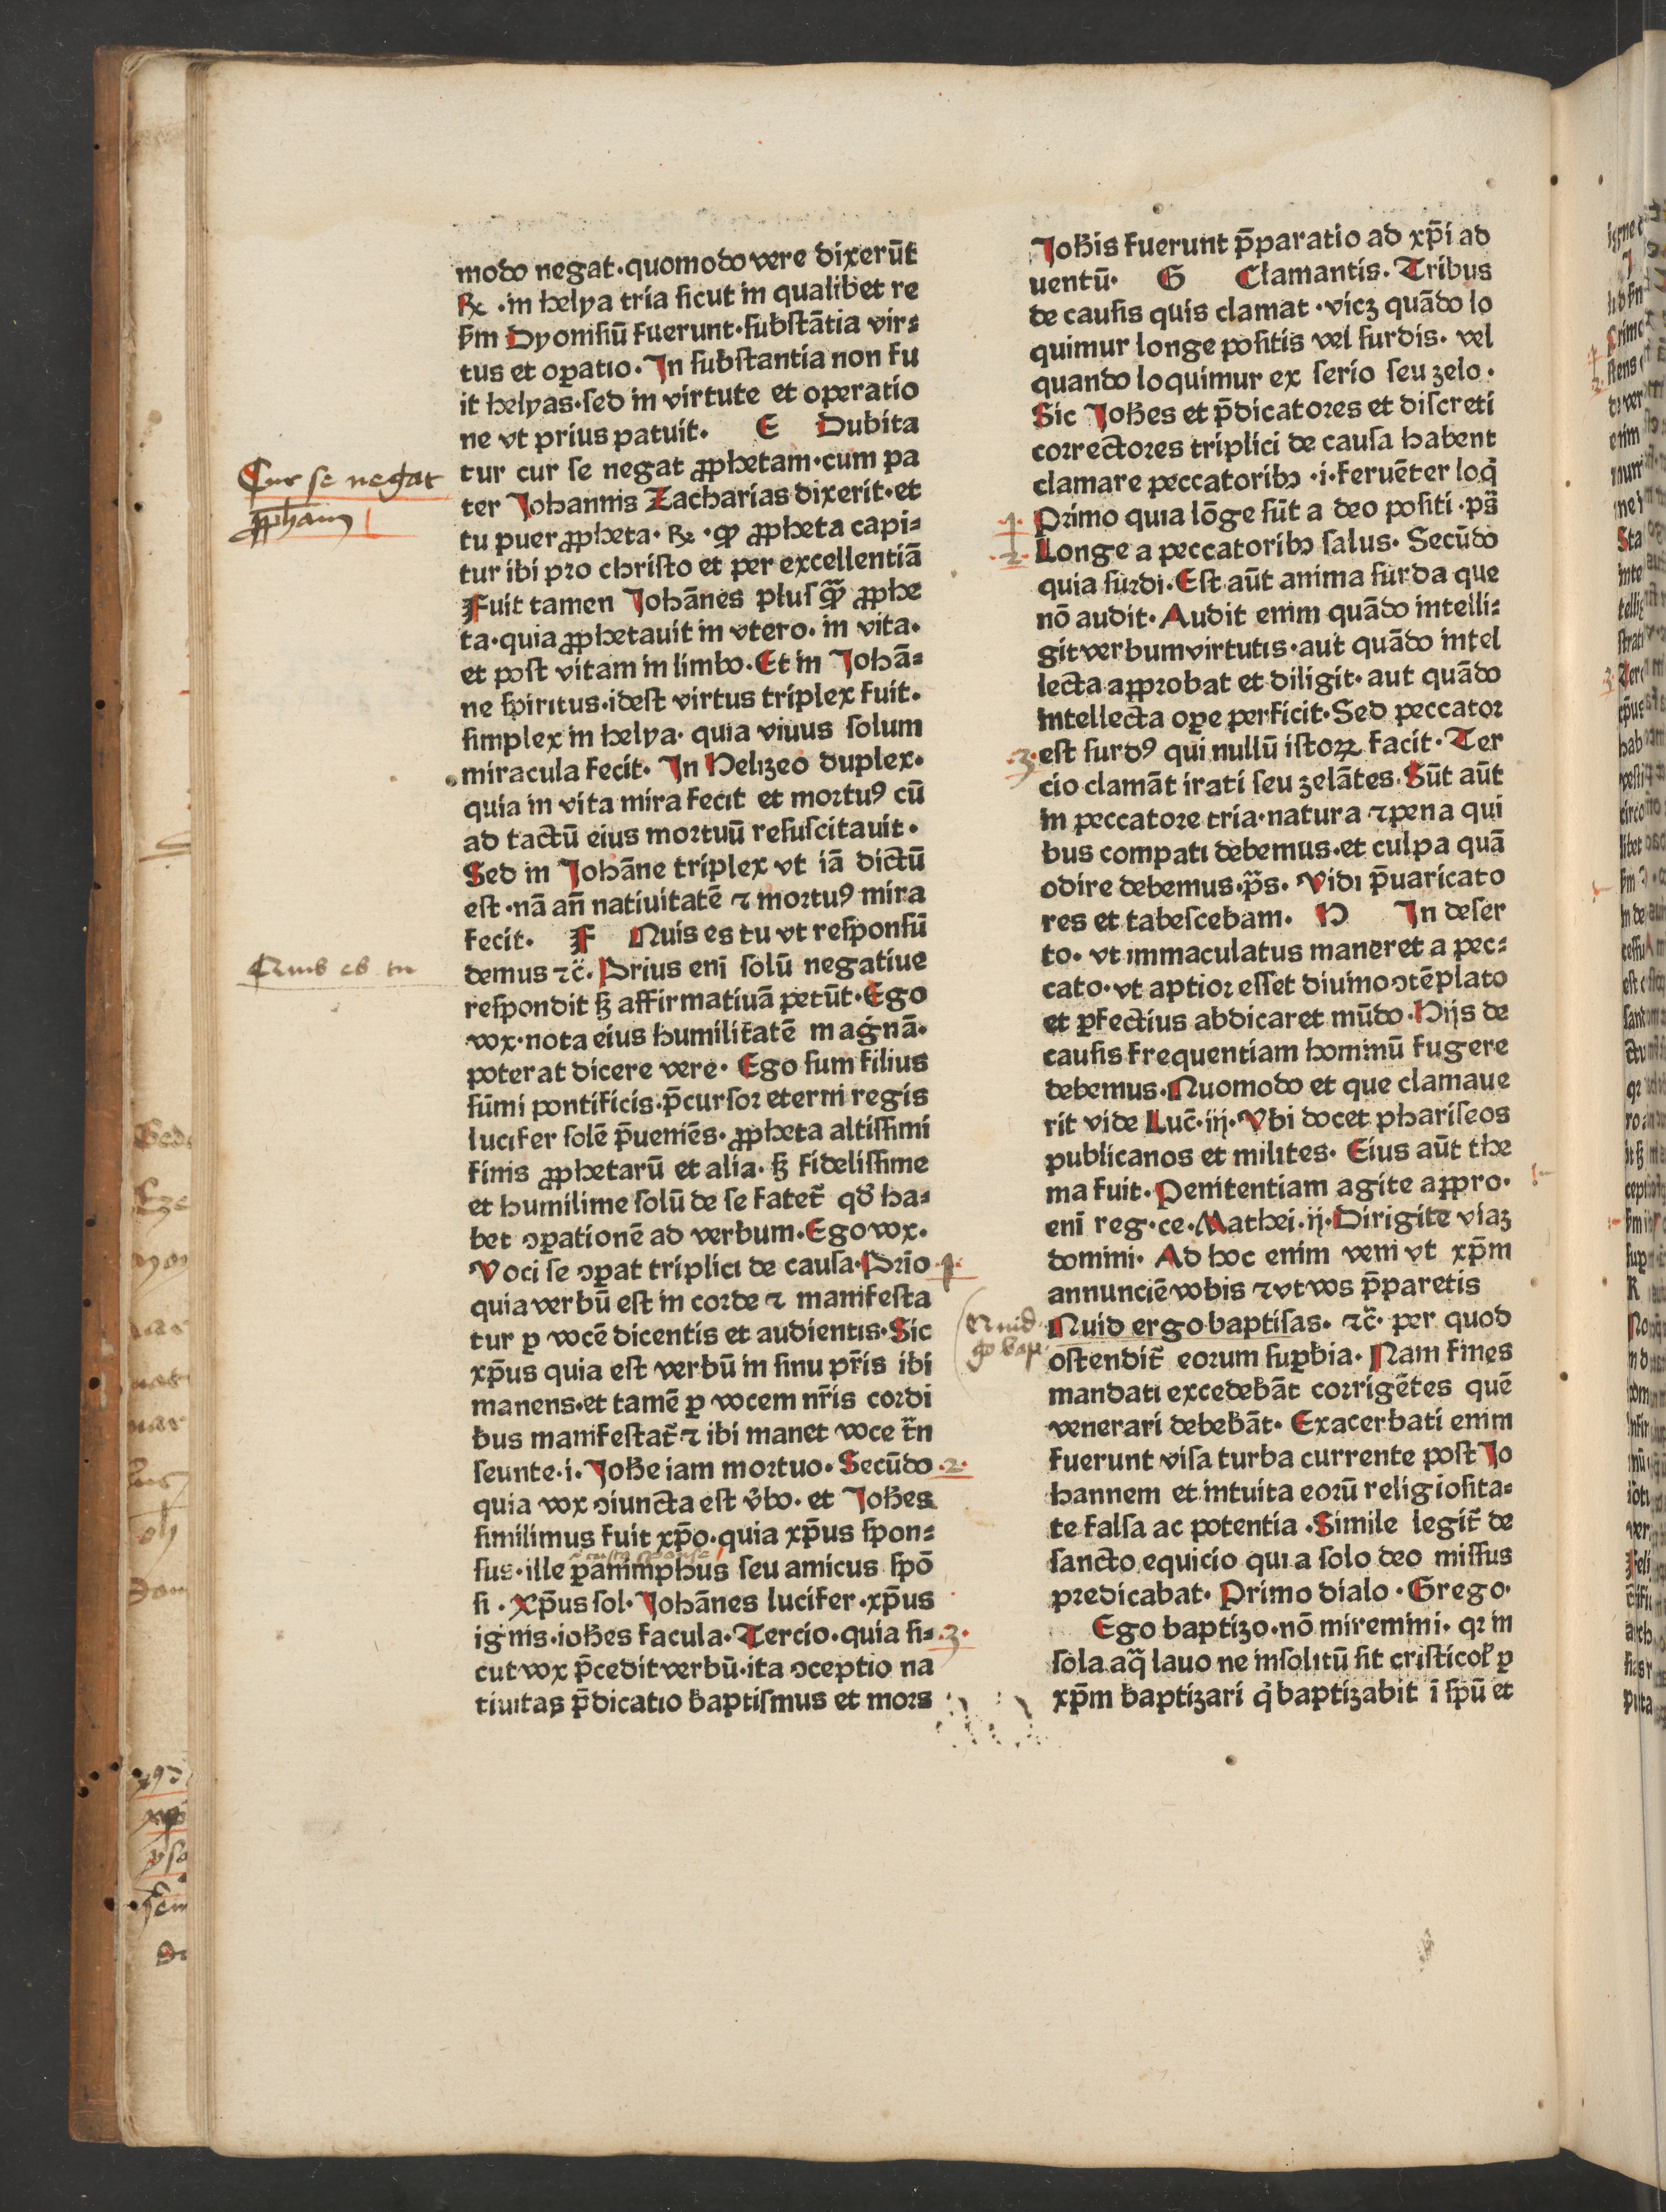 modo negat·quomodo vere dixerūt
℞ ·in helya tria sicut in qualibet re
scḋm Dyonisiū fuerunt·substātia vir⸗
tus et oꝑatio· In substantia non fu
it helyas·sed in virtute et operatio
ne vt prius patuit· E Dubita
tur cur se negat ꝓphetam·cum pa
ter Johannis Zacharias dixerit·et
tu puer ꝓpheta· ℞ ·ꝙ ꝓpheta capi⸗
tur ibi pro christo et per excellentiā
Fuit tamen Johānes plusꝙ̄ ꝓphe
ta·quia ꝓphetauit in vtero· in vita·
et post vitam in limbo· Et in Johā⸗
ne spiritus·idest virtus triplex fuit·
simplex in helya· quia viuus solum
miracula fecit· In Helizeo duplex·
quia in vita mira fecit et mortuꝰ cū
ad tactū eius mortuū resuscitauit·
Sed in Johāne triplex vt iā dictū
est·nā an̄ natiuitatē ⁊ mortuꝰ mira
fecit· F Quis es tu vt responsū
demus ⁊c̄· Prius eni̅ solū negatiue
respondit sꝫ affirmatiuā petūt· Ego
vox·nota eius humilitatē magnā·
poterat dicere vere· Ego sum filius
sūmi pontificis·p̄cursor eterni regis
lucifer solē p̄ueniēs· ꝓpheta altissimi
finis ꝓphetarū et alia· sꝫ fidelissime
et humilime solū de se fatet̄ qd̓ ha⸗
bet ꝯꝑationē ad verbum· Ego vox·
Voci se ꝯꝑat triplici de causa·Prīo
quia verbū est in corde ⁊ manifesta
tur ꝑ vocē dicentis et audientis· Sic
xp̄us quia est verbū in sinu pr̄is ibi
manens·et tamē ꝑ vocem nr̄is cordi
bus manifestat̄ ⁊ ibi manet voce tr̄n
seunte·i· Joħe iam mortuo· Secūdo
quia vox ꝯiuncta est v̓bo· et Joħes
similimus fuit xp̄o·quia xp̄us spon⸗
sus·ille paranimphus seu amicus spō
si · Xp̄us sol· Johānes lucifer·xp̄us
ignis·ioħes facula· Tercio·quia si⸗
cut vox p̄cedit verbū·ita ꝯceptio na
tiuitas p̄dicatio baptismus et mors
Joħis fuerunt p̄paratio ad xp̄i ad
uentū· G Clamantis· Tribus
de causis quis clamat ·vicꝫ quādo lo
quimur longe positis vel surdis· vel
quando loquimur ex serio seu zelo·
Sic Joħes et p̄dicatores et discreti
correctores triplici de causa habent
clamare peccatoribꝫ ·i·feruēter loq̇
Primo quia lōge sūt a deo positi ·ps̄
Longe a peccatoribꝫ salus· Secūdo
quia surdi· Est aūt anima surda que
nō audit· Audit enim quādo intelli⸗
git verbum virtutis·aut quādo intel
lecta approbat et diligit· aut quādo
intellecta oꝑe perficit· Sed peccator
est surdꝰ qui nullū istoꝝ facit· Ter
cio clamāt irati seu zelātes· Sūt aūt
in peccatore tria·natura ⁊ pena qui
bus compati debemus·et culpa quā
odire debemus·p̄s· Vidi p̄uaricato
res et tabescebam· H In deser
to· vt immaculatus maneret a pec⸗
cato·vt aptior esset diuino ꝯtēplato
et ꝑfectius abdicaret mūdo· Hijs de
causis frequentiam hominū fugere
debemus· Quomodo et que clamaue
rit vide Luc̄·iij· Vbi docet phariseos
publicanos et milites· Eius aūt the
ma fuit· Penitentiam agite appro·
eni̅ reg·ce· Mathei·ij· Dirigite viaꝫ
domini· Ad hoc enim veni vt xp̄m
annunciē vobis ⁊ vt vos p̄paretis
Quid ergo baptisas· ⁊c̄· per quod
ostendit̄ eorum suꝑbia· Nam fines
mandati excedebāt corrigētes quē
venerari debebāt· Exacerbati enim
fuerunt visa turba currente post Jo
hannem et intuita eorū religiosita⸗
te falsa ac potentia · Simile legit̄ de
sancto equicio qui a solo deo missus
predicabat· Primo dialo · Grego·
Ego baptizo·nō miremini· qꝛ in
sola aq̄ lauo ne insolitū sit cristicoł ꝑ
xp̄m baptizari q̇ baptizabit ī spū et
Cur se negat
ꝓpham
Quis es tu
·1·
·2·
·3·
·1·
·2·
·3·
Quid
go bap